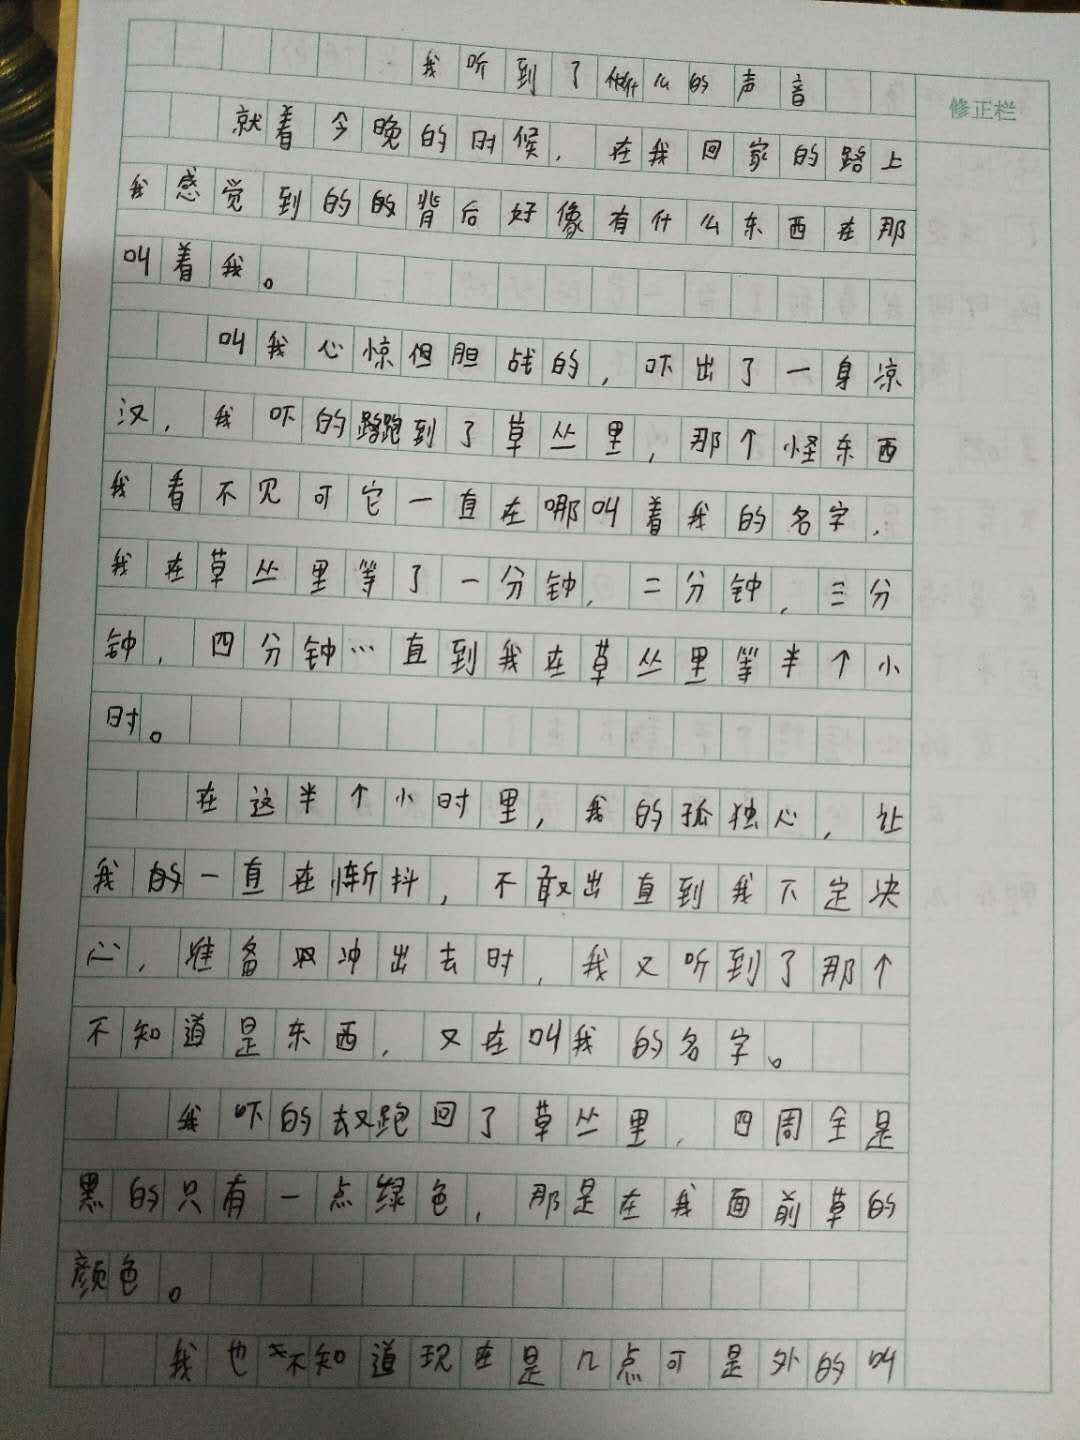 我听到了什么的声音
修正栏
就着今晚的时候，在我回家的路上
我感觉到的的背后好像有什么东西在那
叫着我。
叫我心惊但胆战的，吓出了一身凉
汉，我吓的跑到了草丛里，那个怪东西
我看不见可它一直在哪叫着我的名字，
我在草丛里等了一分钟，二分钟，三分
钟，四分钟…直到我在草丛里等半个小
时。
在这半个小时里，我的孤独心，让
我的一直在惭抖，不敢出直到我下定决
心，准备冲出去时，我又听到了那个
不知道是东西，又在叫我的名字。
我吓的又跑回了草丛里，四周全是
黑的只有一点绿色，那是在我面前草的
颜色。
我也不知道现在是几点可是外的叫